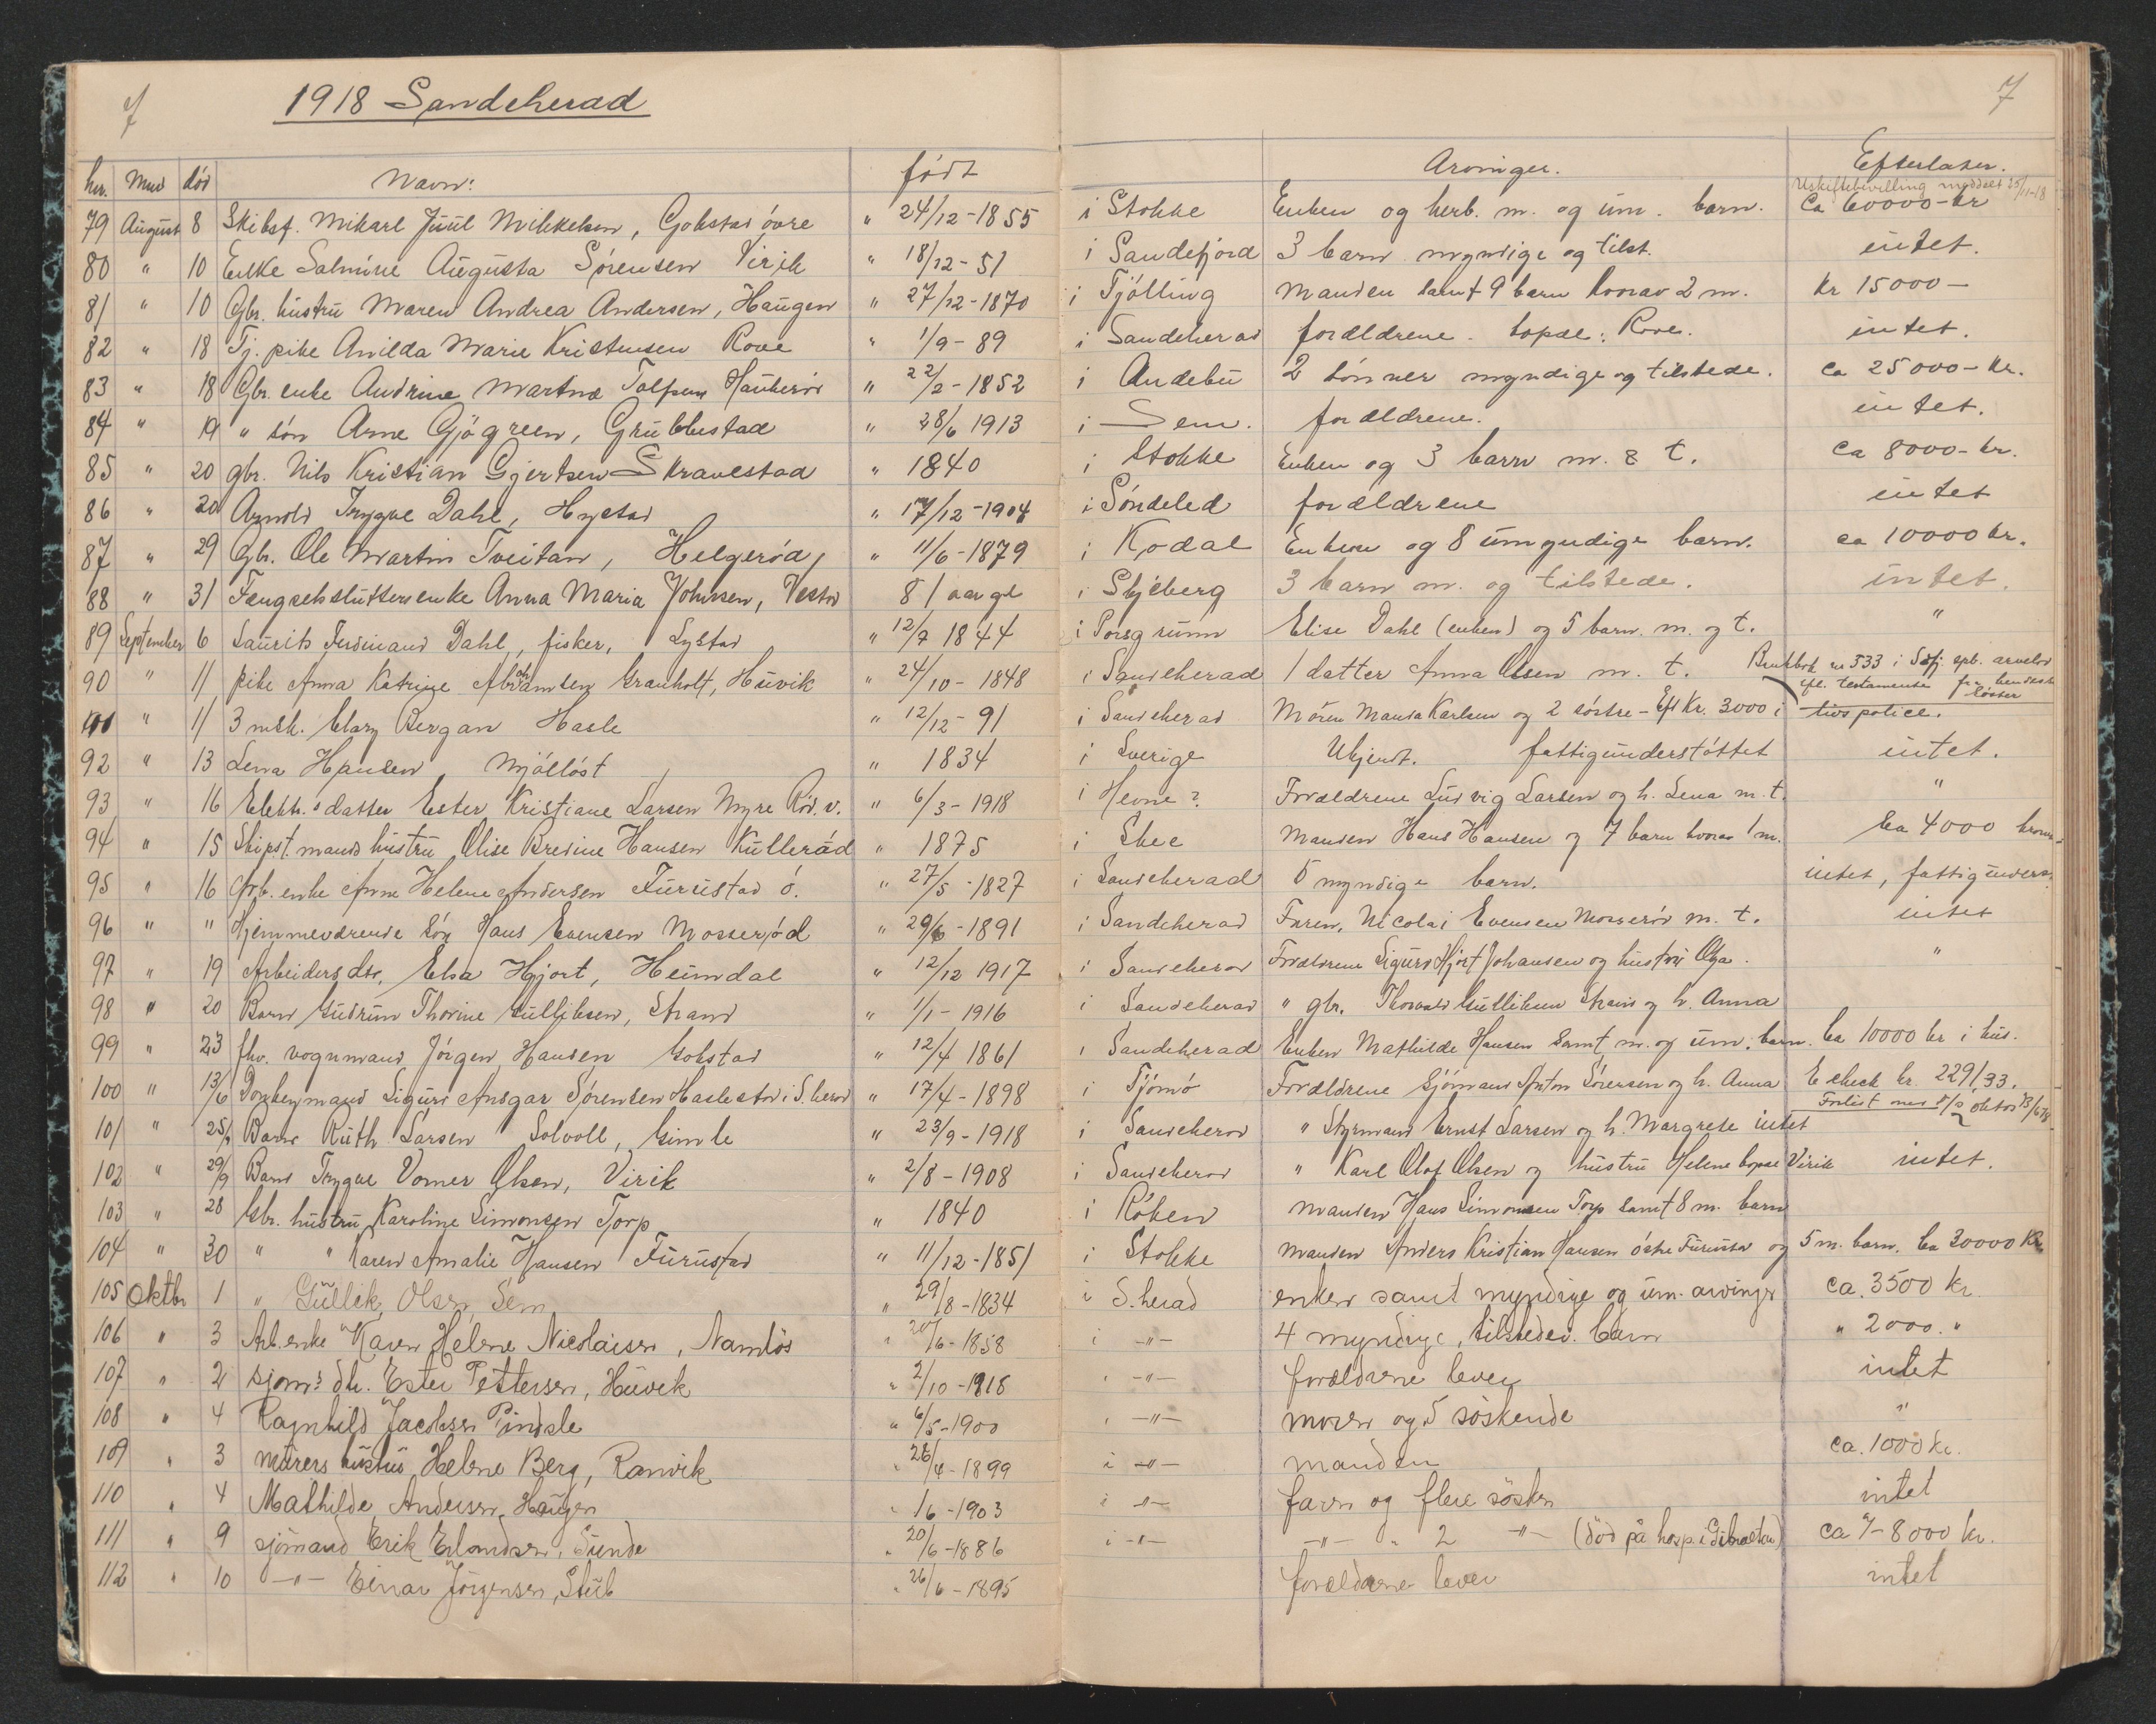 7
1918 Sandeherad
7
Nr. Mnd død Navn: født Arvinger. Efterlater.
Uskiftebevilling meddelt 25/11-18
79 August 8 Skibsf. Mikael Juul Mikkelsen, Gokstad øvre " 24/12-1855 i Stokke Enken og herb. m. og um. barn. Ca 60000-kr
80 " 10 Enke Salmine Augusta Sørensen Virik " 18/12-51 i Sandefjord 3 barn myndige og tilst. intet.
81 " 10 Gbr. hustru Maren Andrea Andersen, Haugen " 27/12-1870 i Tjölling Manden samt 9 barn hvorav 2 m. kr 15000-
82 " 18 Tj. pike Anilda Marie Kristensen Rove " 1/9-89 i Sandeherad forældrene. bopæl: Rove. intet.
83 " 18 Gbr. enke Andrine Martine Tolfsen Haukerød " 22/2-1852 i Andebu 2 sønner myndige og tilstede. ca 25000-kr.
84 " 19 " søn Arne Gjøgreen, Grubbestad " 28/6 1913 i Sem. forældrene. intet.
85 " 20 gbr. Nils Kristian Gjertsen Skravestad " 1840 i Stokke Enken og 3 barn m. & t. ca 8000-kr.
86 " 20 Arnold Trygve Dahl, Hystad " 17/12-1904 i Söndeled forældrene intet
87 " 29 Gbr. Ole Martin Tveitan, Helgerød, " 11/6-1879 i Kodal Enken og 8 umyndige barn. ca 10000 kr.
88 " 31 Fængselsslutterenke Anna Maria Johnsen, Vestad 81 aar gl i Skjeberg 3 barn m. og tilstede. intet.
89 September 6 Laurits Ferdinand Dahl, fisker, Lystad " 12/7 1844 i Porsgrunn Elise Dahl (enken) og 5 barn. m. og t. "
90 " 11 pike Anna Katrine Abrahamsen Granholt, Huvik " 24/10-1848 i Sandeherad 1 datter Anna Olsen m. t. Bankbok nr 533 i Sefj. spb. arvelod
efl. testamente fra hendes søster
" 11 3 msk. Clary Bergan Hasle " 12/12-91 i Sandeherad Moren Manda Karlsen og 2 søstre - Eft Kr. 3000 i livspolice.
92 " 13 Lena Hansen, Mjølløst " 1834 i Sverige Ukjendt. fattigunderstøttet intet.
93 " 16 Elektr.s datter Ester Kristiane Larsen Myre Rød. v. " 6/3-1918 i Hevne? Forældrene Ludvig Larsen og h. Lena m. t. "
94 " 15 Skipst.mands hustru Olise Bredine Hansen Kullerød " 1875 i Skee Manden Hans Hansen og 7 barn hvorav 1 m. Ca 4000 kroner
95 " 16 Arb. enke Anne Helene Andersen Furustad ø. " 27/5-1827 i Sandeherad 5 myndige barn. intet, fattigunderst.
96 " " Hjemmeværende søn Hans Evensen Mosserød " 29/6-1891 i Sandeherad Faren, Nicolai Evensen Mosserød m. t. intet
97 " 19 Arbeidersdtr. Elsa Hjort, Heimdal " 12/12 1917 i Sandeherad Forældrene Sigurd Hjort Johansen og hustru Olga. "
98 " 20 Barn Gudrun Thorine Gulliksen, Strand " 1/1-1916 i Sandeherad " gbr. Thorvald Gulliksen Strand og h. Anna
99 " 23 fhv. vognmand Jørgen Hansen Gokstad " 12/4 1861 i Sandeherad Enken Mathilde Hansen samt m. og um. barn. Ca 10000 kr i hus.
100 " 13/6 Donkeymand Sigurd Ansgar Sørensen Haslestad i S.herad " 17/4-1898 i Tjømø Forældrene Sjømand Anton Sørensen og h. Anna E check kr. 229,33.
Forlist med S/S Oktos 13/6 18
101 " 25/9 Barn Ruth Larsen Solvoll, Gimle " 23/9-1918 i Sandeherad " Styrmand Ernst Larsen og h. Margrete intet
102 " 29/9 Barn Trygve Vomer Olsen, Virik " 2/8-1908 i Sandeherad " Karl Olaf Olsen og hustru Helene bopæl Virik intet.
103 " 28 Gbr. hustru Karoline Simonsen Torp " 1840 i Röken Manden Hans Simonsen Torp samt 8 m. barn
104 " 30 " " Karen Amalie Hansen Furustad " 11/12-1851 i Stokke Manden Anders Kristian Hansen østre Furustad og 5 m. barn. Ca 30000 Kr
105 Oktbr 1 " Gullik Olsen, Sem " 29/8-1834 i S.herad enken samt myndige og um. arvinger ca. 3500 kr.
106 " 3 Arb.enke Karen Helene Nicolaisen, Namløs " 20/6-1858 i -"- 4 myndige, tilstedev. barn " 2000. "
107 " 2 sjøm.s dtr. Ester Pettersen, Huvik " 2/10-1918 i -"- forældrene lever intet
108 " 4 Ragnhild Jacobsen Pindsle " 6/5-1900 i -"- moren og 5 søskende "
109 " 3 murers hustru Helene Berg, Ranvik " 26/4-1899 i -"- manden ca. 1000 kr.
110 " 4 Mathilde Andersen, Haugen " /6-1903 i -"- faren og flere søsken intet
111 " 9 sjømand Erik Erlandsen, Sunde " 20/6-1886 i -"- -"- " 2 -"- (død på hosp. i Gibraltar) ca 7-8000 kr.
112 " 10 -"- Einar Jørgensen, Stub " 26/6-1895 forældrene lever intet